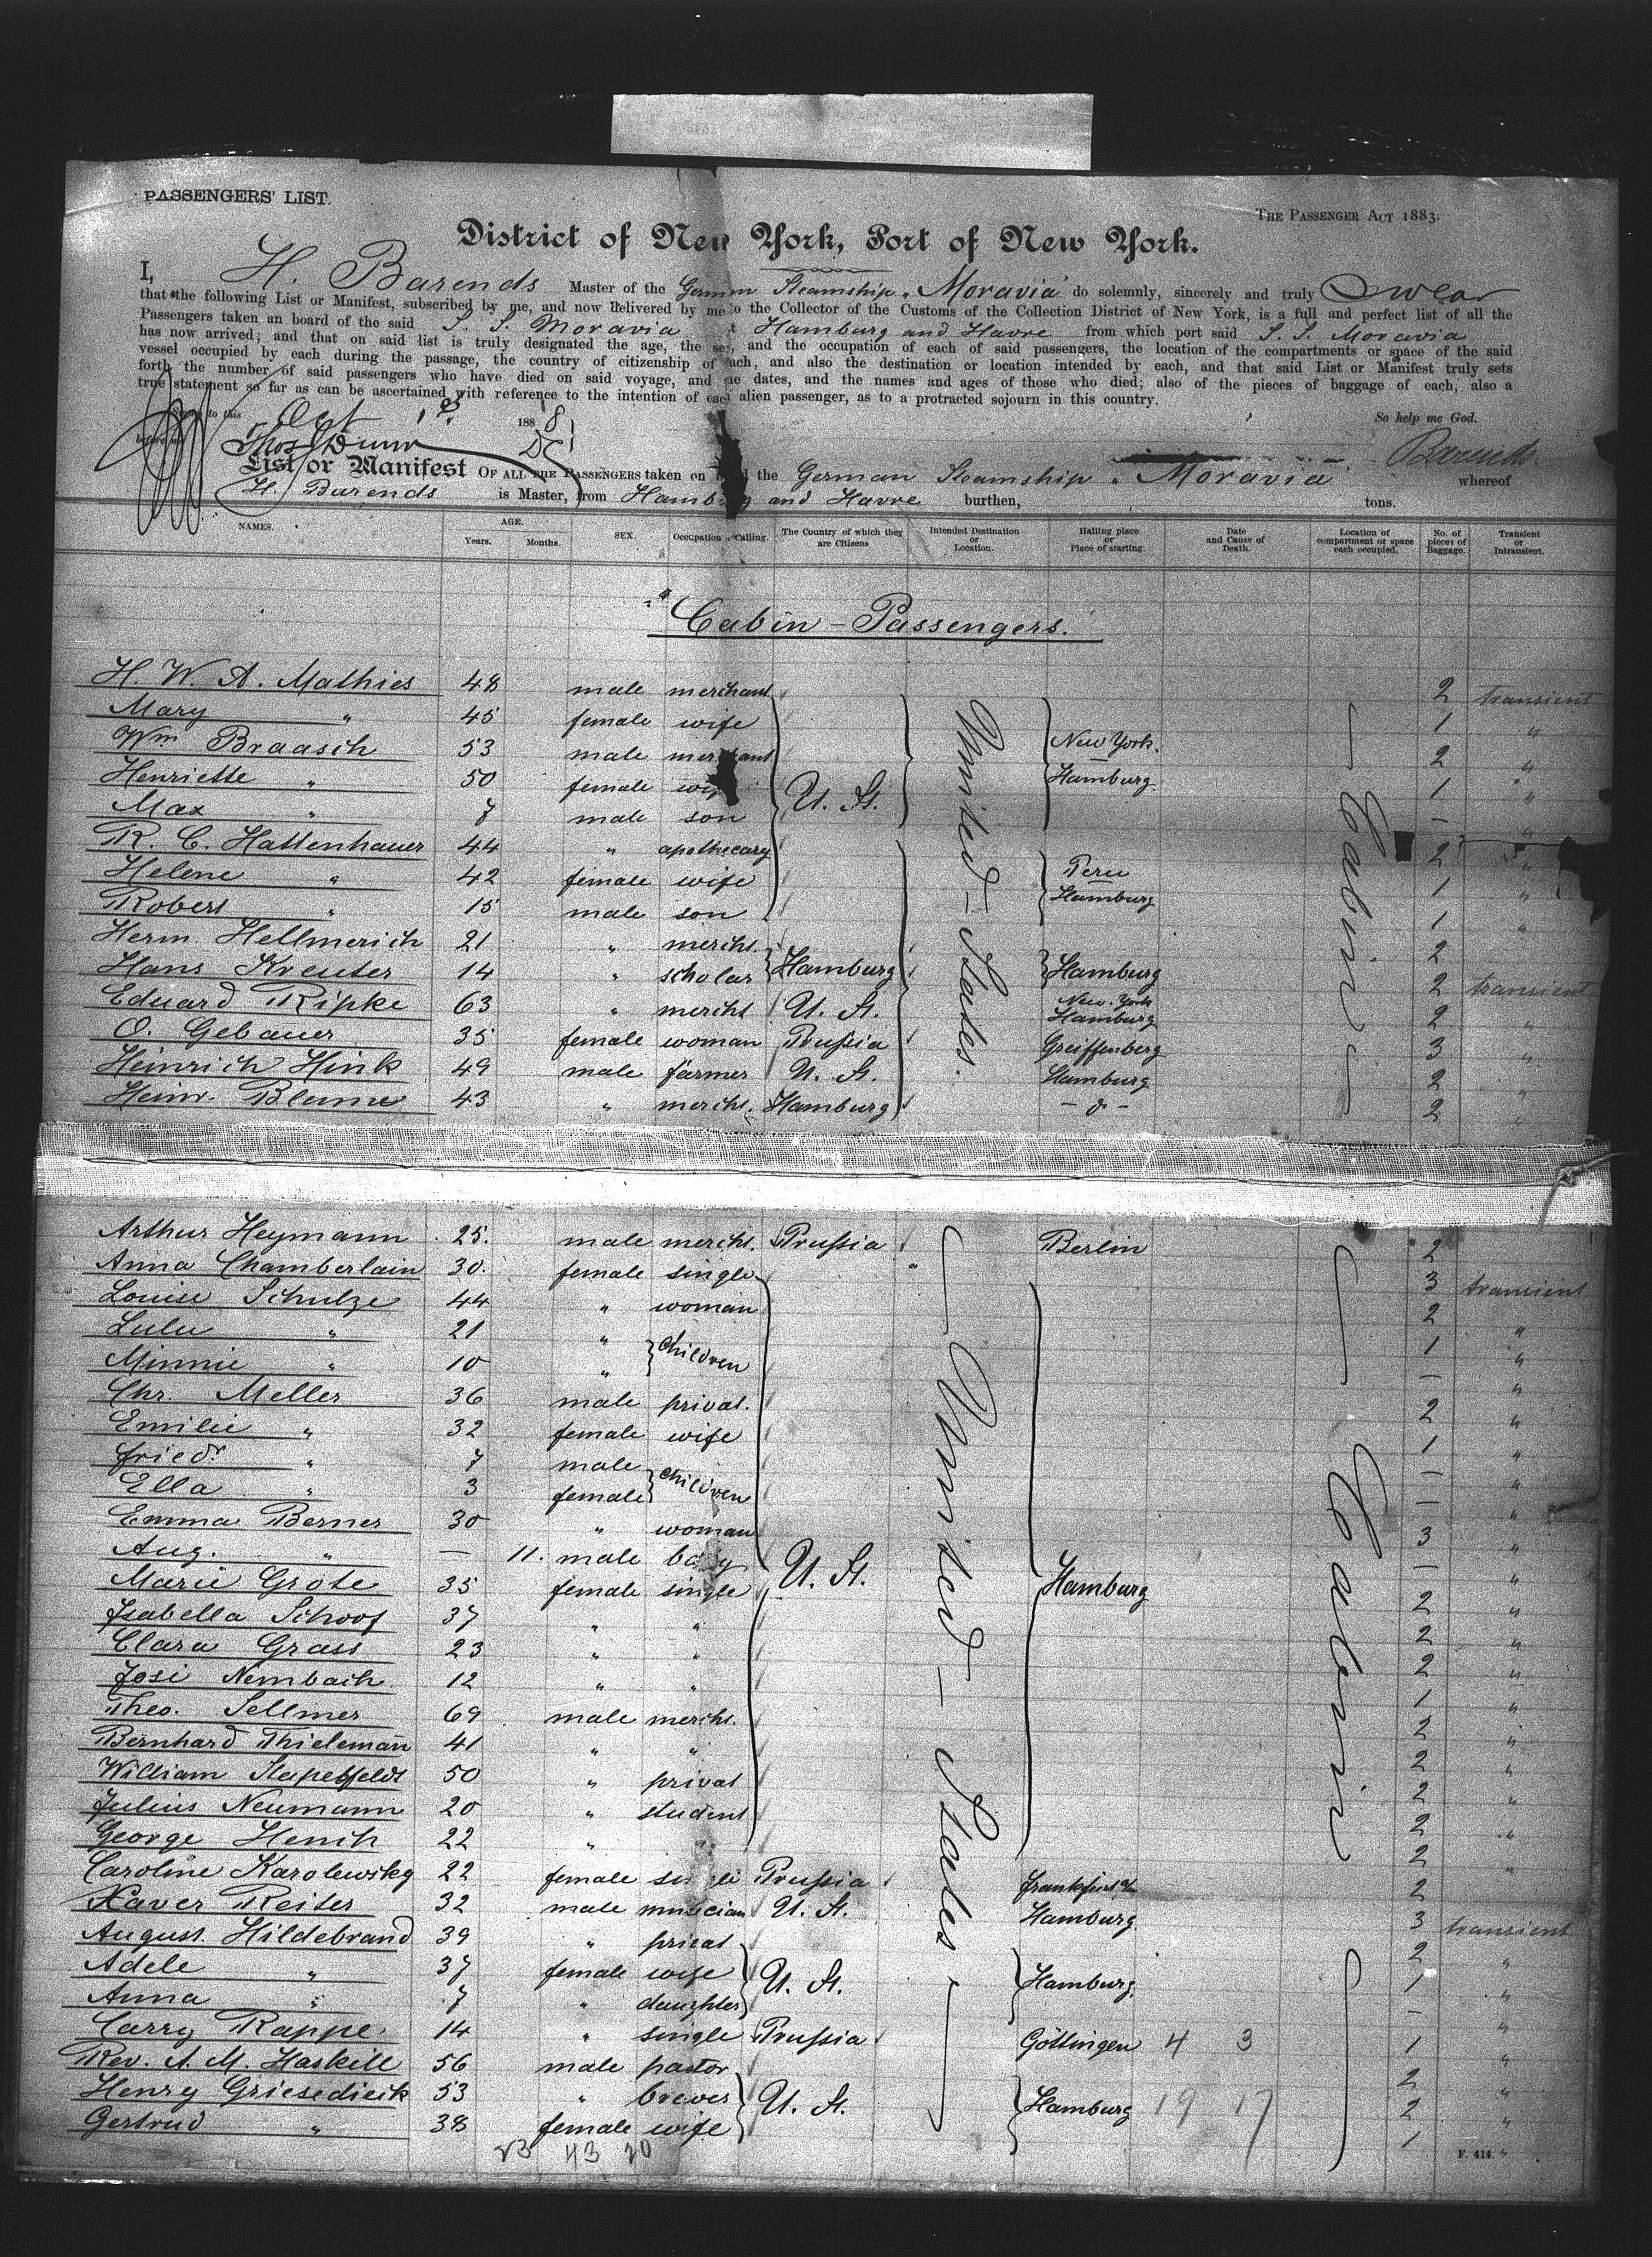 PASSENGERS' LIST.
THE PASSENGER ACT 1883.
District of New York, Port of New York.
I, H. Barends Master of the German Steamship "Moravia" do solemnly, sincerely and truly swear
that the following List or Manifest, subscribed by me, and now delivered by me to the Collector of the Customs of the Collection District of New York, is a full and perfect list of all the
Passengers taken an board of the said S. S. Moravia at Hamburg and Havre from which port said S. S. Moravia
has now arrived; and that on said list is truly designated the age, the sex, and the occupation of each of said passengers, the location of the compartments or space of the said
vessel occupied by each during the passage, the country of citizenship of each, and also the destination or location intended by each, and that said List or Manifest truly sets
forth the number of said passengers who have died on said voyage, and the dates, and the names and ages of those who died; also of the pieces of baggage of each, also a
true statement so far as can be ascertained with reference to the intention of each alien passenger, as to a protracted sojourn in this country.
to this Oct 1st 1888
So help me God.
before me Thos Dunn
Barends
List or Manifest OF ALL THE PASSENGERS taken on the German Steamship "Moravia" whereof
H. Barends is Master, from Hamburg and Havre burthen, tons.
NAMES. AGE. Years. Months. SEX. Occupation Calling. The Country of which they are Citizens Intended Destination or Location. Hailing place or Place of starting. Date and Cause of Death. Location of compartment or space each occupied. No. of pieces of Baggage. Transient or Intransient.
Cabin-Passengers.
H. W. A. Mathies 48 male merchant 2 transient
Mary " 45 female wife 1 "
Wm Braasch 53 male merchant New York. 2 "
Henriette " 50 female wife Hamburg 1 "
Max " 7 male son U. St. - "
R. C. Hattenhauer 44 " apothecary 2 "
Helene " 42 female wife Peru 1 "
Robert " 15 male son Hamburg 1 "
Herm. Hellmerich 21 " mercht. 2
Hans Kreuter 14 " scholar Hamburg Hamburg 2 transient
Eduard Ripke 63 " mercht U. St. New York Hamburg 2 "
O. Gebauer 35 female woman Prussia Greiffenberg 3 "
Heinrich Hink 49 male farmer U. St. Hamburg 2 "
Heinr. Blume 43 " mercht. Hamburg - d - 2 "
United - States.
- Cabin -
Arthur Heymann 25. male mercht. Prussia " Berlin 2
Anna Chamberlain 30. female single 3 transient
Louise Schulze 44 " woman 2 "
Lulu " 21 " children 1 "
Minnie " 10 " - "
Chr. Meller 36 male privat. 2 "
Emilie " 32 female wife 1 "
Friedr " 7 male children - "
Ella " 3 female - "
Emma Berner 30 " woman 3 "
Aug. " - 11. male baby U. St. - "
Marie Grote 35 female single Hamburg 2 "
Isabella Schoof 37 " " 2 "
Clara Grass 23 " " 2 "
Josi Nembach 12 " " 1 "
Theo. Sellmer 69 male mercht. 2 "
Bernhard Thielemann 41 " " 2 "
William Stapelfeldt 50 " privat 2 "
Julius Neumann 20 " student 2 "
George Henih 22 " " 2 "
Caroline Karolewsky 22 female single Prussia Frankfurt 2
Xaver Reiter 32 male musician U. St. Hamburg 3 transient
August Hildebrand 39 " privat 2 "
Adele " 37 female wife U. St. Hamburg. 1 "
Anna " 7 " daughter - "
Carry Rappe 14 " single Prussia Göttingen 4 3 1 "
Rev. A. M. Haskell 56 male pastor 2 "
Henry Griesedieck 53 " brewer U. St. Hamburg 19 17 2 "
Gertrud " 38 female wife 1 "
- United - States -
- Cabin
23 43 20
F. 414.